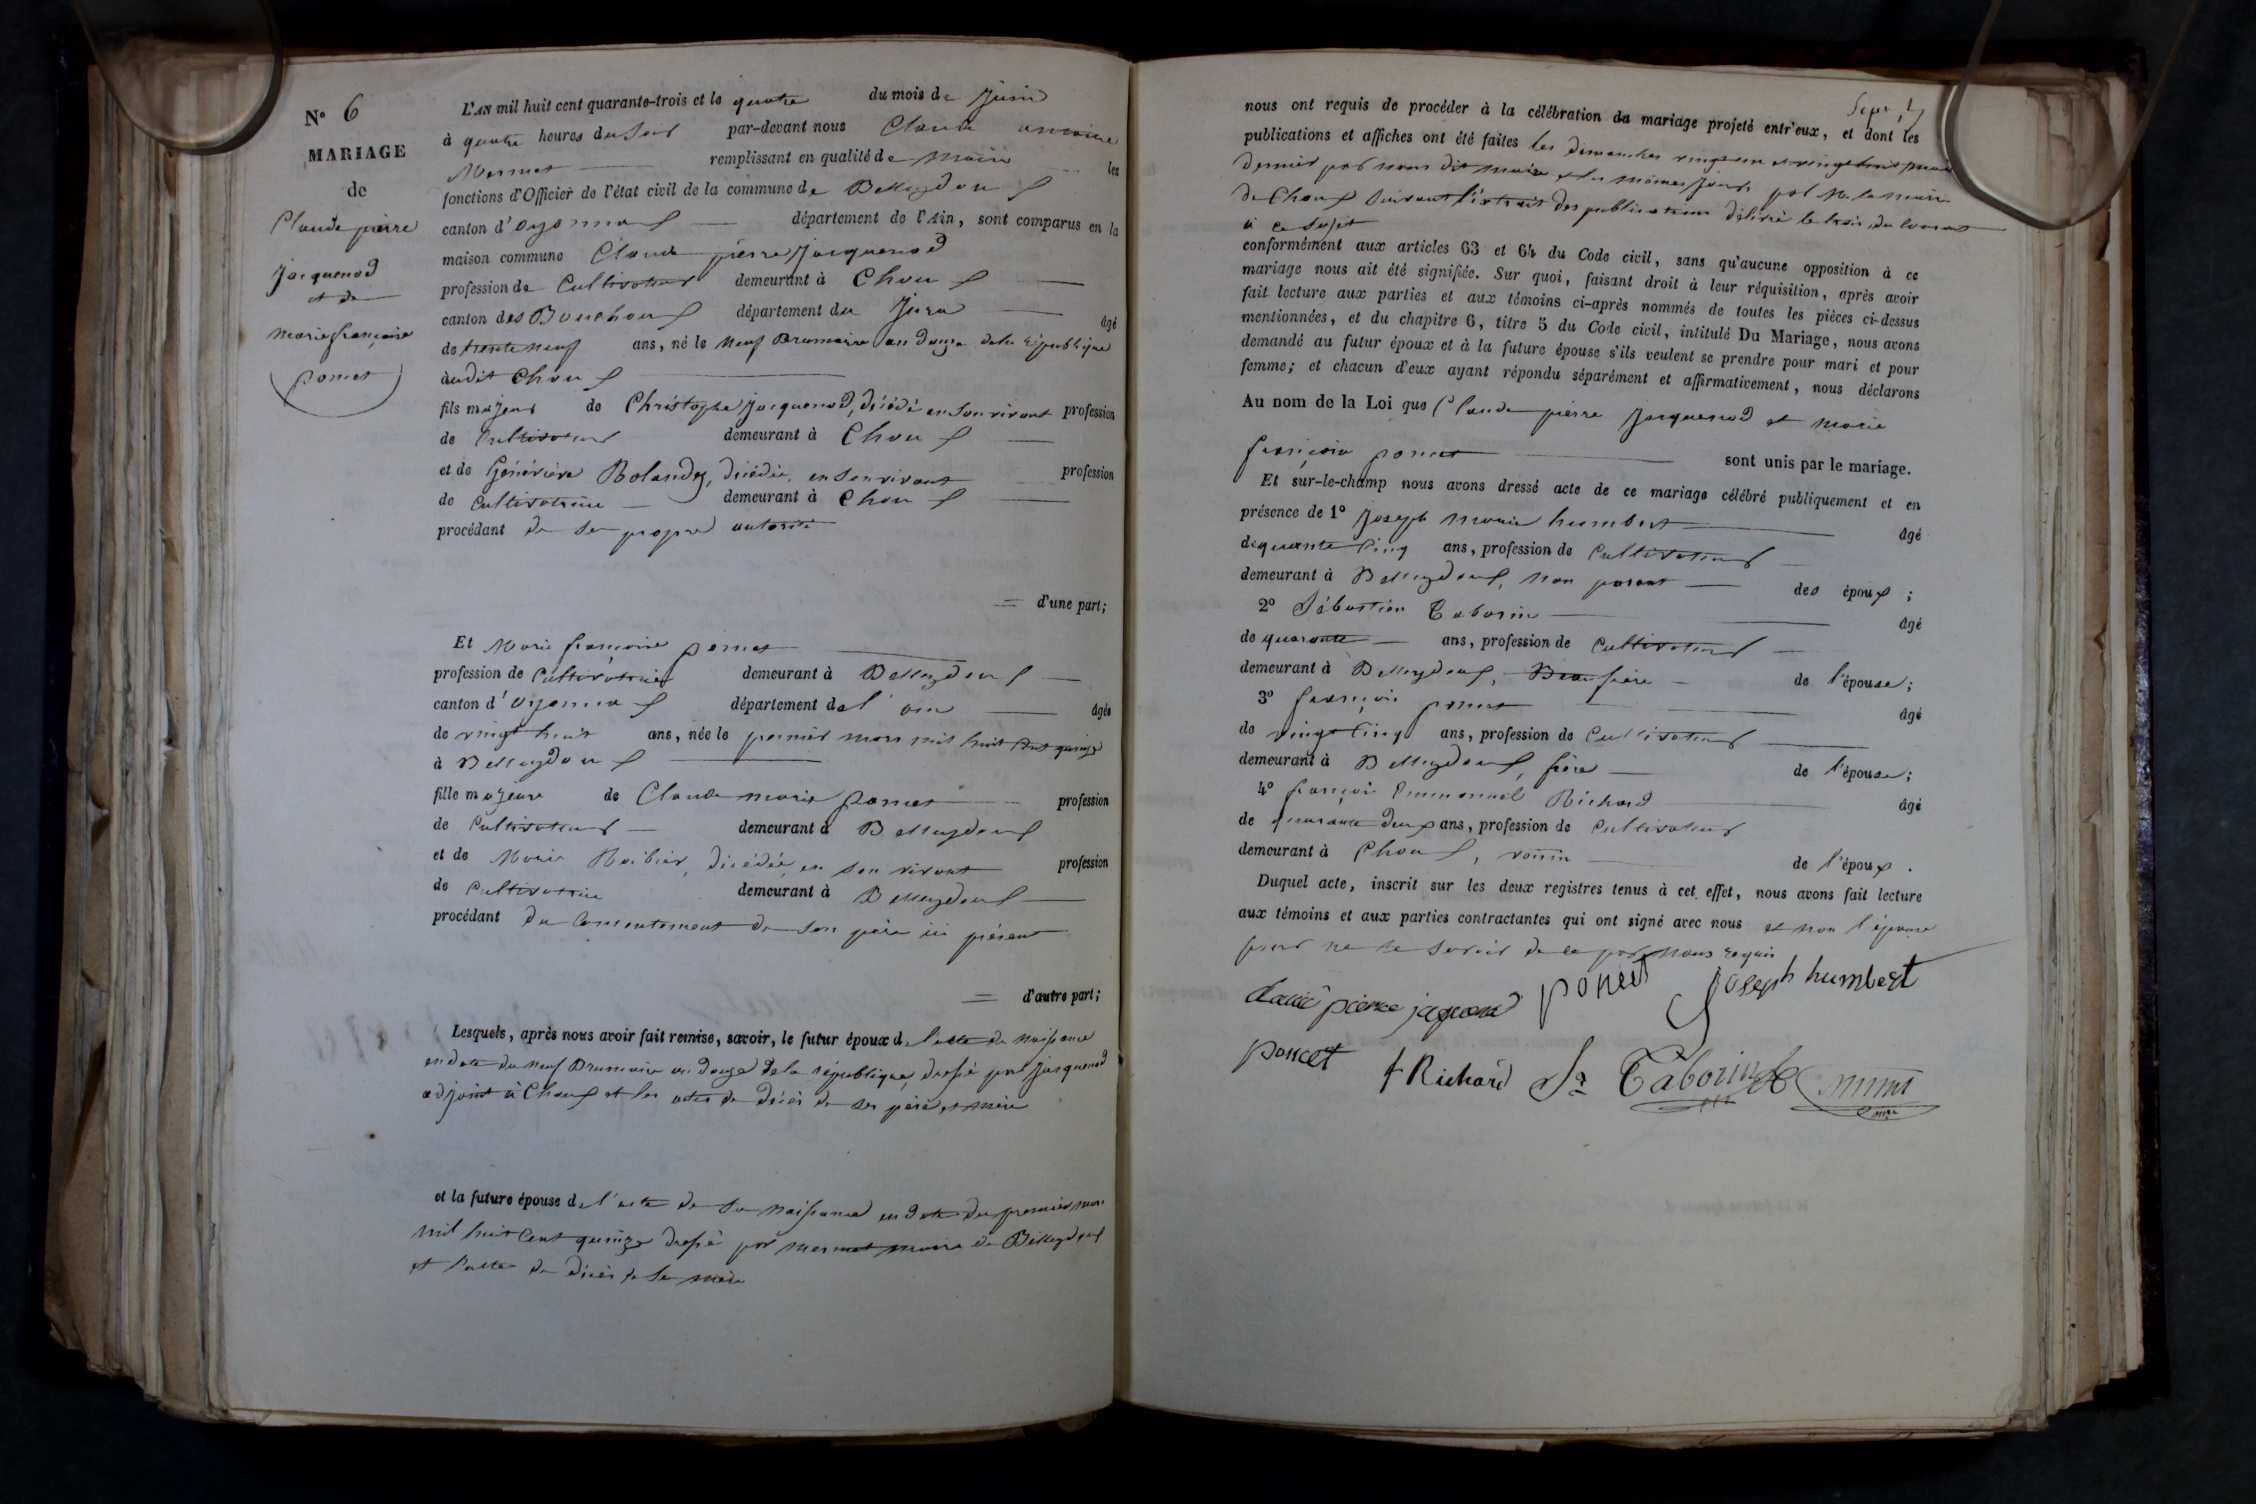 N° 6
MARIAGE
de
Claude pierre
Jacquenod
et de
marie françoise
poncet
L'AN mil huit cent quarante-trois et le quatre du mois de Juin
à quatre heures du soir par-devant nous Claude antoine
Mermet remplissant en qualité de maire les
fonctions d'Officier de l'état civil de la commune de Belleydoux
canton d'oyonnax département de l'Ain, sont comparus en la
maison commune Claude pierre Jacquenod
profession de Cultivateur demeurant à Choux
canton des Bouchoux département du Jura âgé
de trente neuf ans, né le neuf Brumaire an douze de la république
audit Choux
fils majeur de Christophe Jacquenod, décédé en son vivant profession
de Cultivateur demeurant à Choux
et de Généviève Rolandez, décédée, en son vivant profession
de Cultivatrice demeurant à Choux
procédant de sa propre autorité
d'une part;
Et Marie françoise poncet
profession de Cultivatrice demeurant à Belleydoux
canton d'oyonnax département de l'ain âgée
de vingt huit ans, née le premier mars mil huit cent quinze
à Belleydoux
fille majeure de Claude marie poncet profession
de Cultivateur demeurant à Belleydoux
et de Marie Roibier, décédée, en son vivant profession
de Cultivatrice demeurant à Belleydoux
procédant du consentement de son père ici présent
d'autre part;
Lesquels, après nous avoir fait remise, savoir, le futur époux de l'acte de naissance
en date du neuf Brumaire an douze de la république, dressé par Jacquenod
adjoint à Choux et les actes de décès de ses père et mère
et la future épouse de l'acte de sa naissance en date du premier mars
mil huit cent quinze dressé par mermet maire de Belleydoux
et l'acte de décès de sa mère
Sept, 7
nous ont requis de procéder à la célébration du mariage projeté entr'eux, et dont les
publications et affiches ont été faites les dimanches vingt un et vingt huit mai
dernier par nous dit maire et les mêmes jours par Mr le maire
de Choux suivant l'extrait des publications délivré le trois du courant
à ce sujet
conformément aux articles 63 et 64 du Code civil, sans qu'aucune opposition à ce
mariage nous ait été signifiée. Sur quoi, faisant droit à leur réquisition, après avoir
fait lecture aux parties et aux témoins ci-après nommés de toutes les pièces ci-dessus
mentionnées, et du chapitre 6, titre 5 du Code civil, intitulé Du Mariage, nous avons
demandé au futur époux et à la future épouse s'ils veulent se prendre pour mari et pour
femme; et chacun d'eux ayant répondu séparément et affirmativement, nous déclarons
Au nom de la Loi que Claude pierre Jacquenod et marie
françoise poncet sont unis par le mariage.
Et sur-le-champ nous avons dressé acte de ce mariage célébré publiquement et en
présence de 1° Joseph marie humbert âgé
de quarante cinq ans, profession de Cultivateur
demeurant à Belleydoux, non parent des époux ;
2° Sébastien Taborin âgé
de quarante ans, profession de Cultivateur
demeurant à Belleydoux, Beau frère de l'épouse ;
3° françois poncet âgé
de vingt cinq ans, profession de Cultivateur
demeurant à Belleydoux, frère de l'épouse ;
4° françois Emmanuel Richard âgé
de quarante deux ans, profession de Cultivateur
demeurant à Choux, voisin de l'époux .
Duquel acte, inscrit sur les deux registres tenus à cet effet, nous avons fait lecture
aux témoins et aux parties contractantes qui ont signé avec nous et non l'épouse
pour ne le savoir de ce par nous requis
poncet Joseph humbert
poncet f Richard Sn Taborin